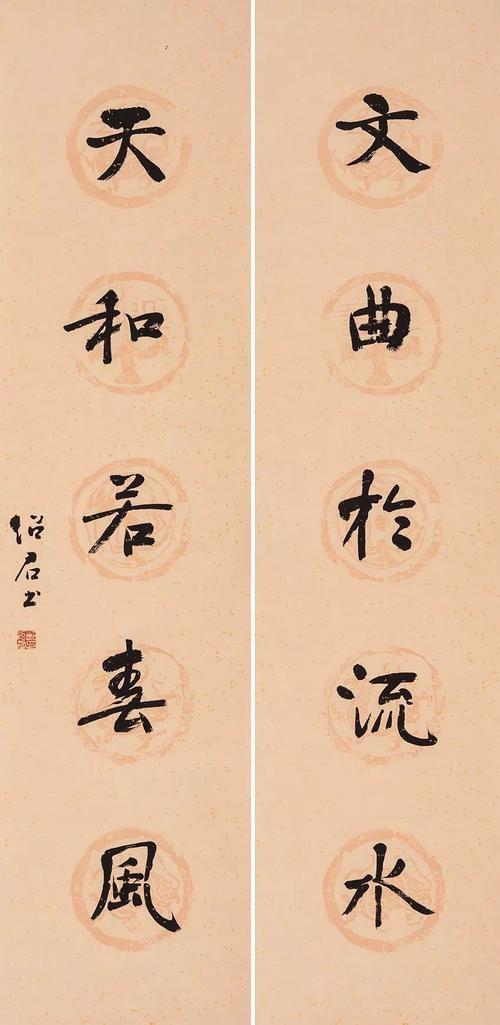 文曲於流水
天和若春風
绍君书